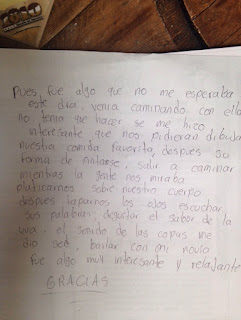 COCO
Pues, fue algo que no me esperaba
este dia, venia caminando con ella
no tenia que hacer, se me hizo
interesante que nos pidieran dibujar
nuestra comida favorita, despues su
forma de pintarse, salir a caminar
mientras la gente nos miraba
platicarnos sobre nuestro cuerpo
despues taparnos los ojos escuchar
sus palabras, degustar el sabor de la
uva. el sonido de las copas me
dio sed, bailar con mi novio
fue algo muy interesante y relajante
GRACIAS